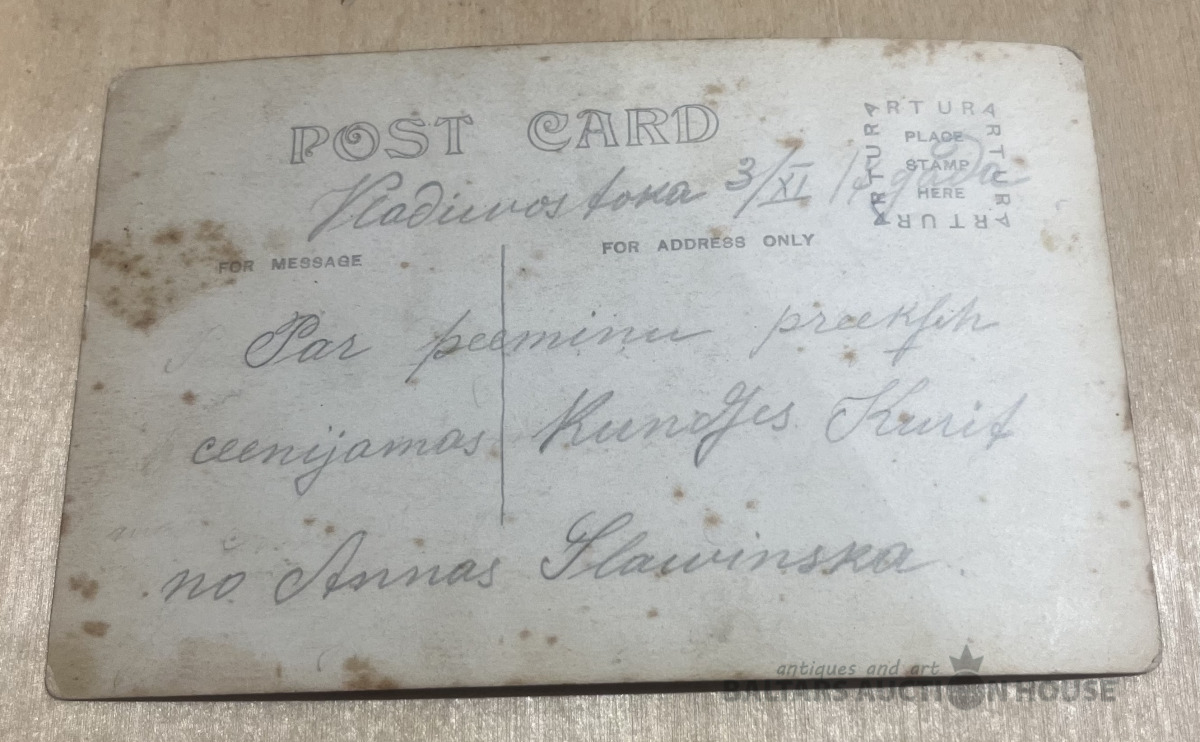 POST CARD
ARTURA
ARTURA
ARTURA
ARTURA
PLACE
STAMP
HERE
Vladiwostoka 3/XI gada
FOR MESSAGE
FOR ADDRESS ONLY
Par peeminu preeksch
ceenijamas Kundses
no Annas Slawinska
antiques and art
BALTARS AUCTION HOUSE